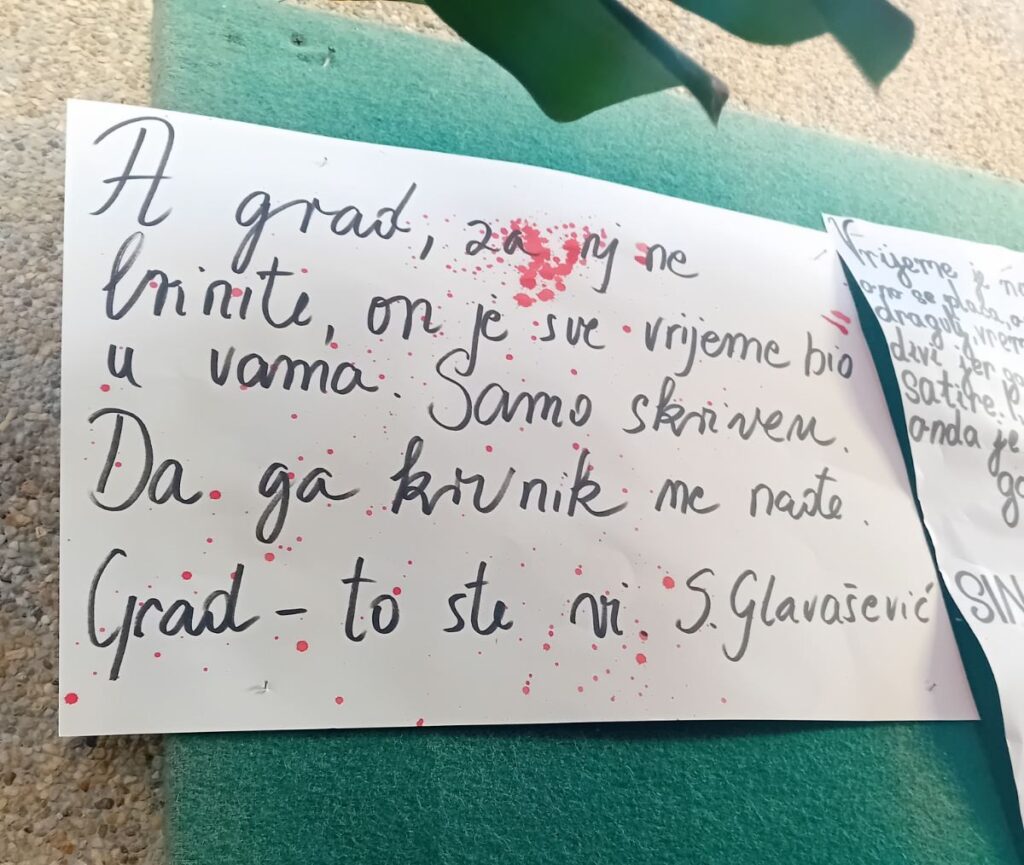 A grad, za nj ne
brinite, on je sve vrijeme bio
u vama. Samo skriven.
Da ga krvnik ne nađe.
Grad - to ste vi. S. Glavašević
Vrijeme je
dragulj, vrem
divi jer go
satire.
onda je
SIN